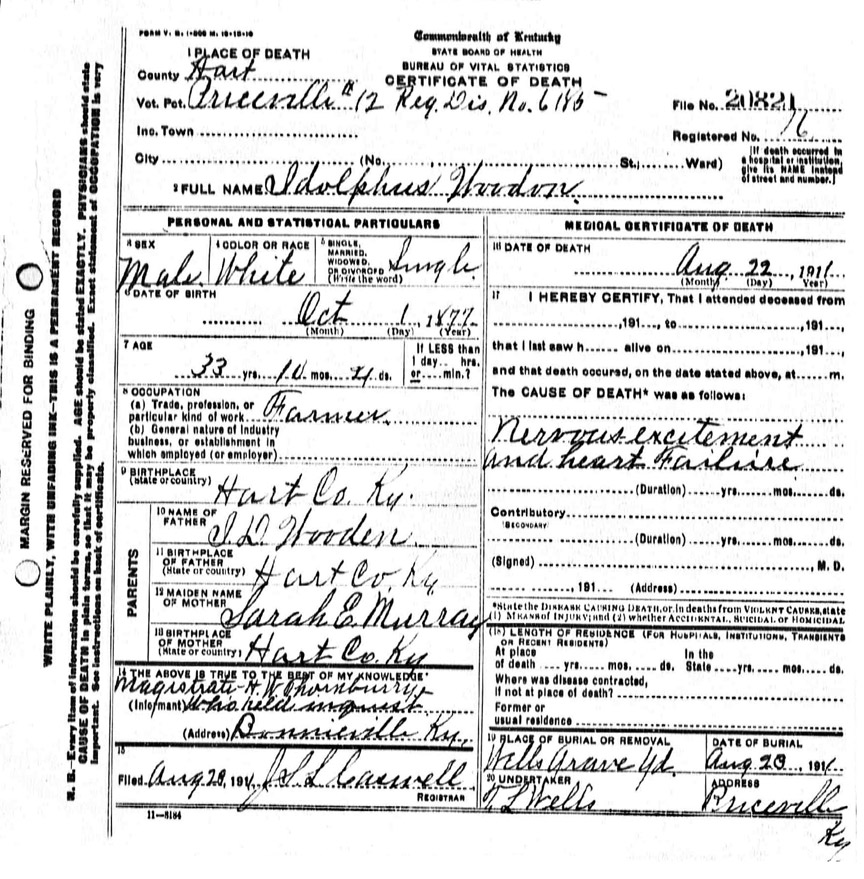 FORM V. S. 1-500 M. 10-15-10
Commonwealth of Kentucky
STATE BOARD OF HEALTH
BUREAU OF VITAL STATISTICS
CERTIFICATE OF DEATH
1 PLACE OF DEATH
County Hart
Vot. Pct. Priceville # 12 Reg. Dis. No. 6185
File No. 20821
Inc. Town
Registered No. 16
City (No. , St.; Ward)
[If death occurred in a hospital or institution, give its NAME instead of street and number.]
2 FULL NAME Idolphus Woodon
PERSONAL AND STATISTICAL PARTICULARS
3 SEX Male
4 COLOR OR RACE White
5 SINGLE, MARRIED, WIDOWED, OR DIVORCED (Write the word) Single
6 DATE OF BIRTH
Oct 1, 1877
(Month) (Day) (Year)
7 AGE
33 yrs. 10 mos. 21 ds.
If LESS than 1 day.... hrs. or.....min.?
8 OCCUPATION
(a) Trade, profession, or particular kind of work Farmer
(b) General nature of Industry business, or establishment in which employed (or employer)
9 BIRTHPLACE
(State or country) Hart Co. Ky.
PARENTS
10 NAME OF FATHER I. D. Wooden
11 BIRTHPLACE OF FATHER (State or country) Hart Co Ky
12 MAIDEN NAME OF MOTHER Sarah E. Murray
13 BIRTHPLACE OF MOTHER (State or country) Hart Co. Ky
14 THE ABOVE IS TRUE TO THE BEST OF MY KNOWLEDGE
Magistrate H. W. Thornburry
(Informant) who held inquest
(Address) Bonnieville Ky.
15
Filed Aug 28, 1911 J S L Caswell
REGISTRAR
11-3184
MEDICAL CERTIFICATE OF DEATH
16 DATE OF DEATH
Aug 22, 1911
(Month) (Day) Year)
17 I HEREBY CERTIFY, That I attended deceased from
,191..., to ,191...,
that I last saw h alive on ,191...,
and that death occured, on the date stated above, at m.
The CAUSE OF DEATH* was as follows:
Nervous excitement
and heart Failure
(Duration) yrs. mos. ds.
Contributory
SECONDARY
(Duration) yrs. mos. ds.
(Signed) , M. D.
, 191... (Address)
*State the DISEASE CAUSING DEATH, or, in deaths from VIOLENT CAUSES, state
(1) MEANS of INJURY; and (2) whether ACCIDENTAL, SUICIDAL or HOMICIDAL
(18) LENGTH OF RESIDENCE (FOR HOSPITALS, INSTITUTIONS, TRANSIENTS OR RECENT RESIDENTS)
At place of death yrs. mos. ds. In the State yrs. mos. ds.
Where was disease contracted,
if not at place of death?
Former or
usual residence
19 PLACE OF BURIAL OR REMOVAL
Wells Grave Yd.
DATE OF BURIAL
Aug 23, 1911
20 UNDERTAKER
T L Wells
ADDRESS
Priceville
Ky
MARGIN RESERVED FOR BINDING
WRITE PLAINLY, WITH UNFADING INK—THIS IS A PERMANENT RECORD
N. B.—Every item of information should be carefully supplied. AGE should be stated EXACTLY. PHYSICIANS should state
CAUSE OF DEATH in plain terms, so that it may be properly classified. Exact statement of OCCUPATION is very
important. See instructions on back of certificate.